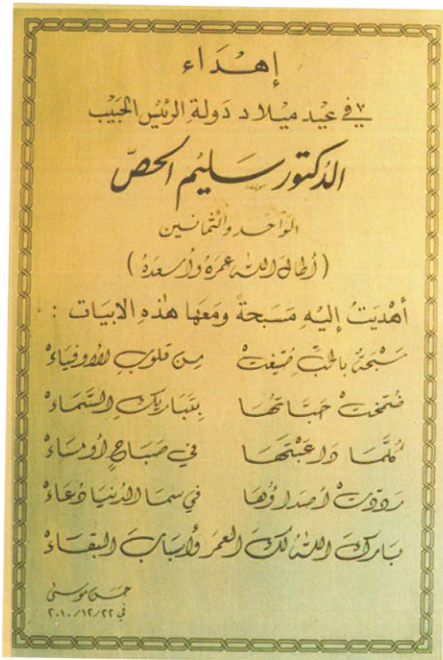 إهداء
في عيد ميلاد دولة الرئيس الحبيب
الدكتور سليم الحص
الواحد والثمانين
(أطال الله عمره وأسعده)
أهديت إليه مسبحة ومعها هذه الابيات :
سبحة بالحب صيغت من قلوب الأوفياء
ضمخت حباتها بتباريك السماء
كلما داعبتها في صباح أو مساء
رددت أصداؤها في سما الدنيا دعاء
بارك الله لك العمر وأسباب البقاء
حسن موسى
في ٢٠١٠/١٢/٢٢